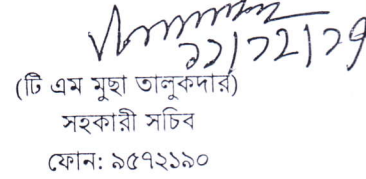 ১১/১২/১৭
(টি এম মুছা তালুকদার)
সহকারী সচিব
ফোন: ৯৫৭২১৯০